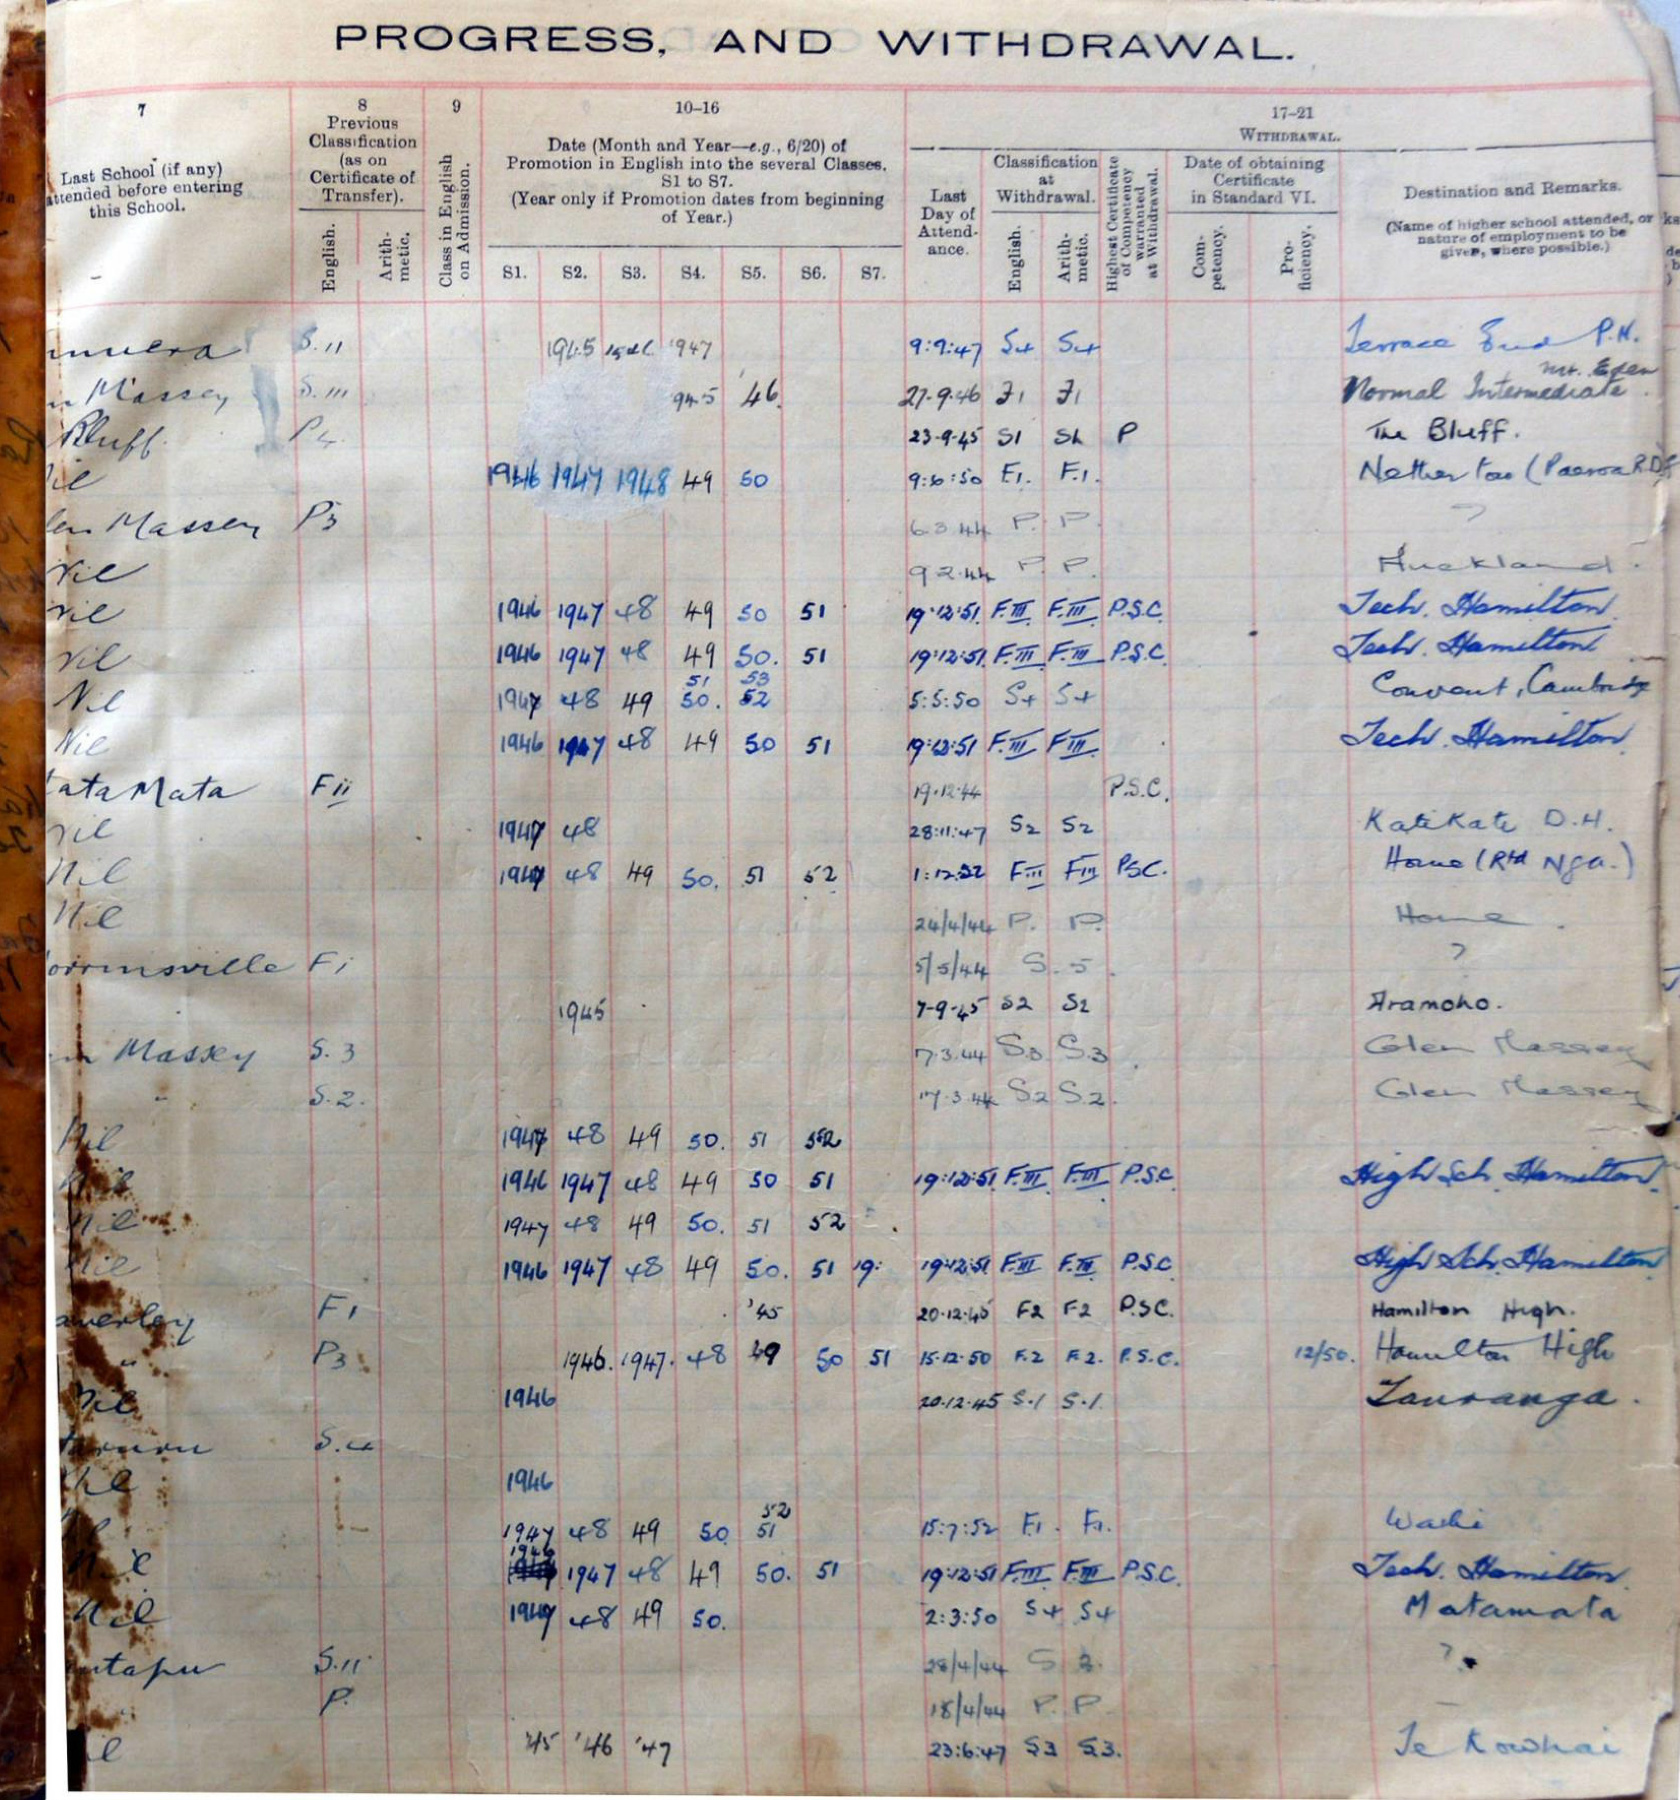 PROGRESS, AND WITHDRAWAL.
7
Last School (if any)
attended before entering
this School.
8
Previous
Classification
(as on
Certificate of
Transfer).
English.
Arith-
metic.
9
Class in English
on Admission.
10–16
Date (Month and Year—e.g., 6/20) of
Promotion in English into the several Classes.
S1 to S7.
(Year only if Promotion dates from beginning
of Year.)
S1. S2. S3. S4. S5. S6. S7.
17–21
WITHDRAWAL.
Last
Day of
Attend-
ance.
Classification
at
Withdrawal.
English.
Arith-
metic.
Highest Certificate
of Competency
warranted
at Withdrawal.
Date of obtaining
Certificate
in Standard VI.
Com-
petency.
Pro-
ficiency.
Destination and Remarks.
(Name of higher school attended, or
nature of employment to be
given, where possible.)
S.11 1945 1947 9:9:47 S4 S4 Terrace End P.N.
Massey S.111 945 '46 27-9-46 F1 F1 Normal Intermediate Mt. Eden
Bluff P4 23-9-45 S1 S1 P The Bluff.
1946 1947 1948 49 50 9:6:50 F1. F.1. Netherton (Paeroa R.D.
Massey P3 6.3.44 P. P. ?
Nil 9.2.44 P. P. Auckland.
Nil 1946 1947 48 49 50 51 19:12:51 F.III F.III P.S.C. Tech. Hamilton
Nil 1946 1947 48 49 50. 51 19:12:51 F.III F.III P.S.C. Tech. Hamilton
51 53
Nil 1947 48 49 50. 52 5:5:50 S4 S4 Convent, Cambridge
Nil 1946 1947 48 49 50 51 19:12:51 F.III FIII Tech. Hamilton
ata Mata Fii 19.12.44 P.S.C.
Nil 1947 48 28:11:47 S2 S2 KatiKati D.H.
Nil 1947 48 49 50. 51 52 1:12:52 FIII FIII PSC. Home (Rtd Nga.)
Nil 24/4/44 P. P. Home.
orrinsville F1 5/5/44 S. 5. ?
1945 7-9-45 S2 S2 Aramoho.
Massey S.3 7.3.44 S.3 S.3 Glen Massey
" S.2. 17.3.44 S2 S.2. Glen Massey
Nil 1947 48 49 50. 51 52
Nil 1946 1947 48 49 50 51 19:12:51 F.III F.III P.S.C High Sch. Hamilton.
Nil 1947 48 49 50. 51 52
Nil 1946 1947 48 49 50. 51 19: 19:12:51 F.III F.III P.S.C High Sch. Hamilton
averley F1 '45 20.12.45 F2 F2 P.S.C. Hamilton High.
" P3 1946. 1947. 48 49 50 51 15.12.50 F.2 F.2. P.S.C. 12/50. Hamilton High
Nil 1946 20.12.45 S.1 S.1 Tauranga.
Nil 1946
52
1947 48 49 50 51 15:7:52 F1. F1. Waihi
1946
Nil 1947 48 49 50. 51 19:12:51 F.III F.III P.S.C. Tech. Hamilton.
Nil 1947 48 49 50. 2:3:50 S4 S4 Matamata
S.11 28/4/44 S 3. ?
P. 18/4/44 P. P.
'45 '46 '47 23:6:47 S3 S3. Te Kowhai